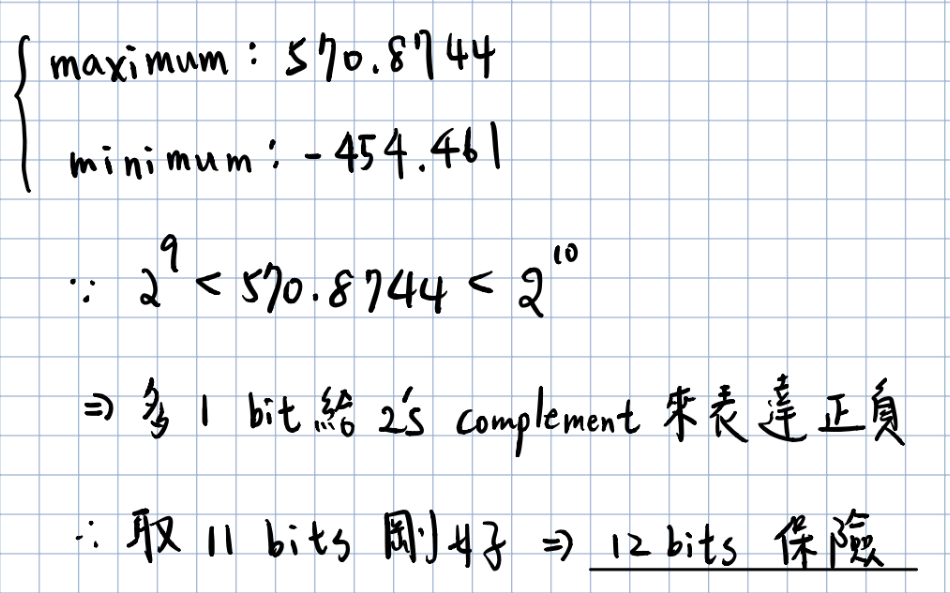 maximum : 570.8744
minimum : -454.461
∵ 2^9 < 570.8744 < 2^10
⇒ 多 1 bit 給 2's complement 來表達正負
∴ 取 11 bits 剛好 ⇒ 12 bits 保險